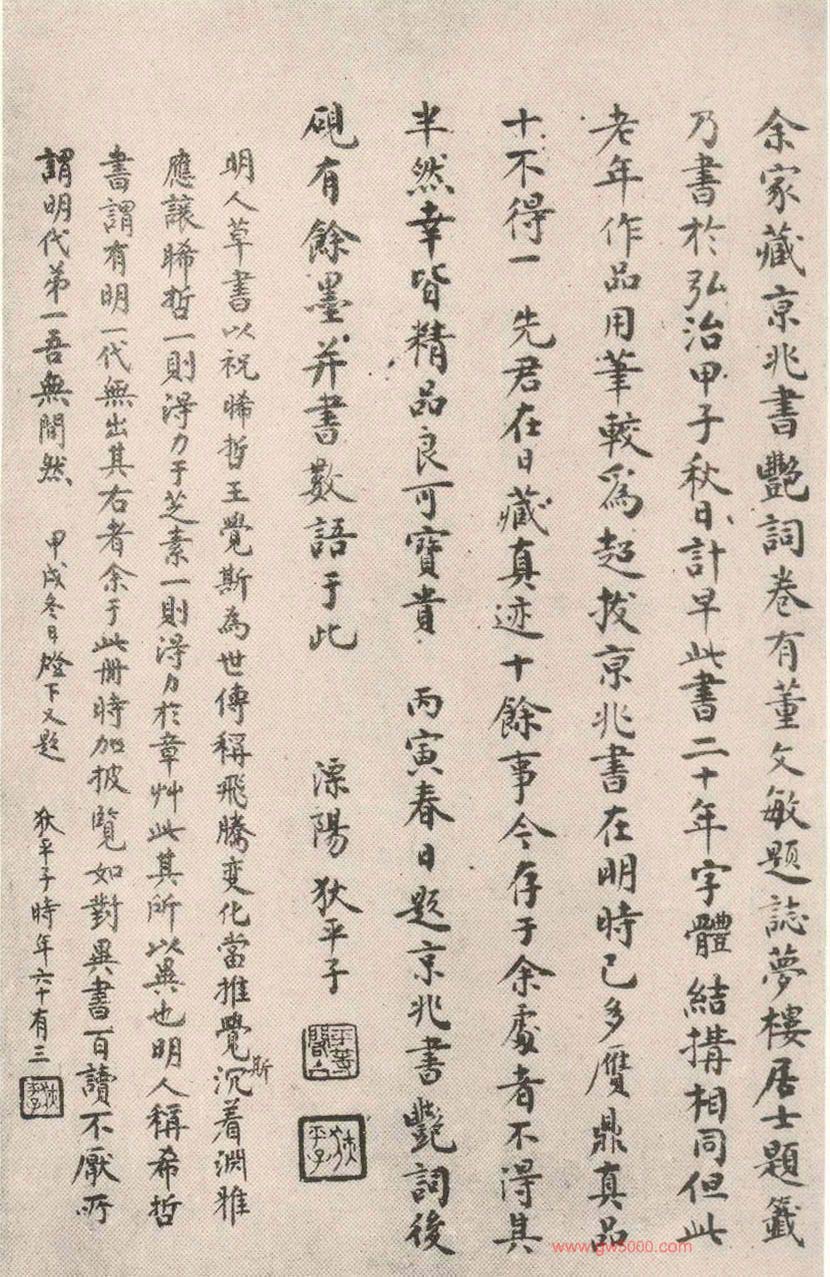 余家藏京兆書艷詞卷有董文敏題誌夢樓居士題籤
乃書於弘治甲子秋日計早此書二十年字體結搆相同但此
老年作品用筆較為超拔京兆書在明時已多贋鼎真品
十不得一 先君在日藏真迹十餘事今存于余處者不得其
半然幸皆精品良可寶貴 丙寅春日題京兆書艷詞後
硯有餘墨并書數語于此 溧陽狄平子
明人草書以祝晞哲王覺斯為世傳稱飛騰变化當推覺斯沉着淵雅
應讓晞哲一則得力于芝素一則得力於章艸此其所以異也明人稱希哲
書謂有明一代無出其右者余于此册時加披覽如對異書百讀不厭所
謂明代第一吾無間然 甲戌冬日燈下又題 狄平子時年六十有三
狄平子
www.gw5000.com